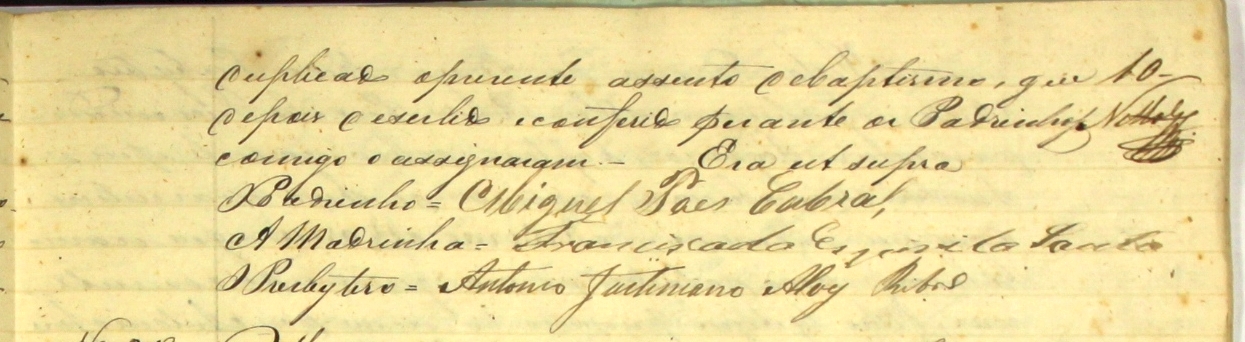 duplicado o prezente assento de baptismo, que
depois de ser lido e conferido perante os Padrinhos
comigo o assignaram – Era ut supra
O Padrinho = Miguel Paes Cabral,
A Madrinha = Francisca do Espirito Santo
O Presbytero = Antonio Justiniano
10–